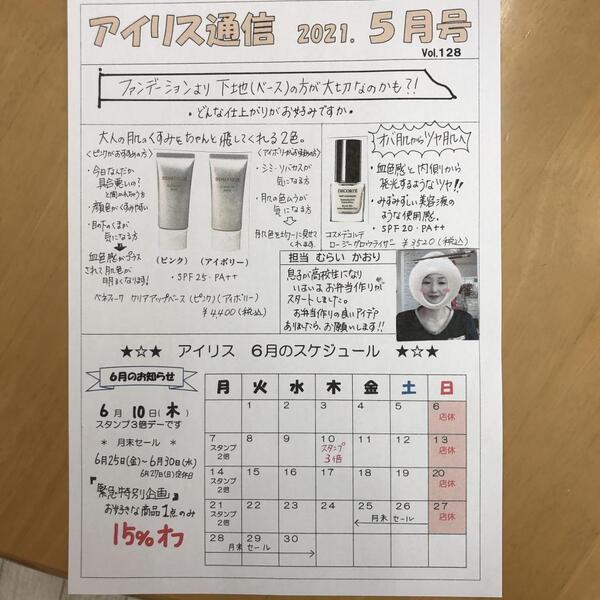 アイリス通信 2021. 5月号
Vol.128
ファンデーションより 下地(ベース)の方が大切なのかも?!
・どんな仕上がりがお好みですか・
大人の肌のくすみをちゃんと飛してくれる2色。
<ピンクがおすすめの方>
・今日なんだか
具合悪いの?
と聞かれちゃう方
・顔色がくすみやすい
・目の下のくまが
気になる方
血色感がプラス
されて肌色が
明るくなります!
(ピンク) (アイボリー)
・SPF25・PA++
ベネフィーク クリアアップベース (ピンク)(アイボリー)
¥4,400(税込)
<アイボリーがおすすめの方>
・シミ・ソバカスが
気になる方
・肌の色ムラが
気になる方
コスメデコルテ
ロージーグロウライザー ¥3520(税込)
オバ肌からツヤ肌へ
・血色感と内側から
発光するようなツヤ!!
・みずみずしい美容液の
ような使用感。
・SPF20・PA++
担当 むらい かおり
息子が高校生になり
いよいよお弁当作りが
スタートしました。
お弁当作りの良いアイデア
ありましたら、お願いします!!
★☆★ アイリス 6月のスケジュール ★☆★
6月のお知らせ
6月10日(木)
スタンプ3倍デーです
* 月末セール *
6月25日(金)~6月30日(水)
6月27日(日)定休日
『緊急特別企画』
お好きな商品1点のみ
15%オフ
月 火 水 木 金 土 日
1 2 3 4 5 6
店休
7 8 9 10 11 12 13
スタンプ2倍 スタンプ3倍 店休
14 15 16 17 18 19 20
スタンプ2倍 店休
21 22 23 24 25 26 27
スタンプ2倍 月末 セール 店休
28 29 30
月末 セール